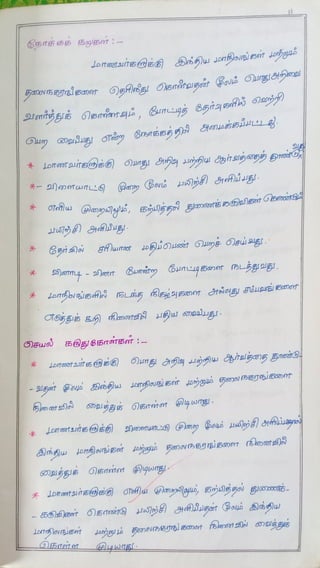 11
நோக்கக் கூறுகள் :-
மாணவர்களுக்கு இந்திய மாநிலங்கள் மற்றும்
தலைநகரங்களை தெரிந்து கொள்வதன் மூலம் பொது அறிவை
வளர்த்துக் கொள்ளவும், போட்டித் தேர்வுகளில் வெற்றி
பெற வைப்பது என்ற நோக்கத்தில் அமைக்கப்பட்டது.
* மாணவர்களுக்கு பொது அறிவு பற்றிய ஆர்வத்தைத் தூண்டுவது
* - விளையாட்டு முறை மூலம் பயிற்சி அளிப்பது.
* எளிய முறையிலும், கற்பித்தல் துணைக்கருவிகள் கொண்டும்
பயிற்சி அளிப்பது.
* தேர்வில் சரியான மதிப்பெண் பெறச் செய்வது.
* வினாடி - வினா போன்ற போட்டிகளை நடத்துவது.
* மாநிலங்களில் நடந்த நிகழ்வுகளை அல்லது சம்பவங்களை
எடுத்துக் கூறி நினைவில் பதிய வைப்பது.
செயல் கருதுகோள்கள் :-
* மாணவர்களுக்கு பொது அறிவு பற்றிய ஆர்வத்தை தூண்டு-
- வதன் மூலம் இந்திய மாநிலங்கள் மற்றும் தலைநகரங்களை
நினைவில் வைத்துக் கொள்ள முடியாது.
* மாணவர்களுக்கு விளையாட்டு முறை மூலம் பயிற்சி அளிப்பதால்
இந்திய மாநிலங்கள் மற்றும் தலைநகரங்களை நினைவில்
வைத்துக் கொள்ள முடியாது.
* மாணவர்களுக்கு எளிய முறையிலும், கற்பித்தல் துணைக்-
- கருவிகள் கொண்டு பயிற்சி அளிப்பதன் மூலம் இந்திய
மாநிலங்கள் மற்றும் தலைநகரங்களை நினைவில் வைத்துக்
கொள்ள முடியாது.